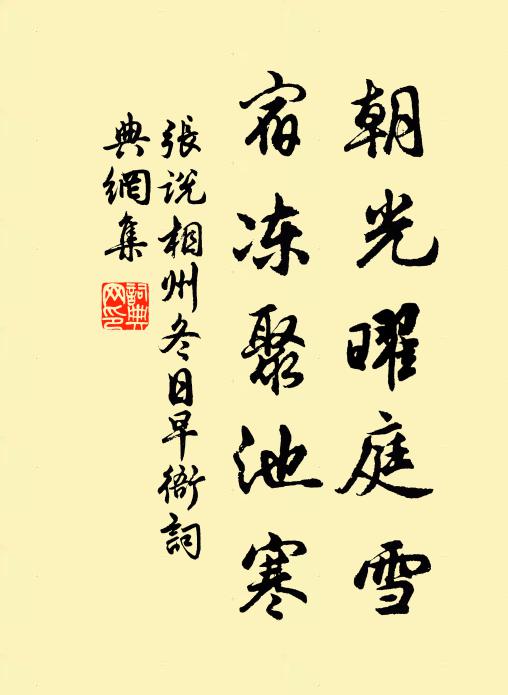 朝光曜庭雪
宿冻聚池寒
張說相州冬日早衙詞
典網集
詞典
网印